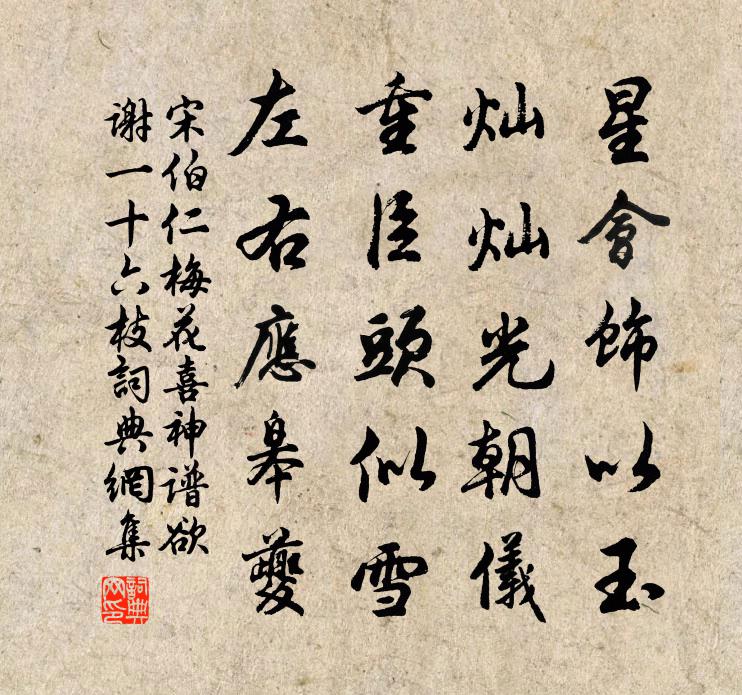 星會飾以玉
灿灿光朝儀
重臣頭似雪
左右應皋夔
宋伯仁梅花喜神谱欲
谢一十六枝詞典網集
詞典網印